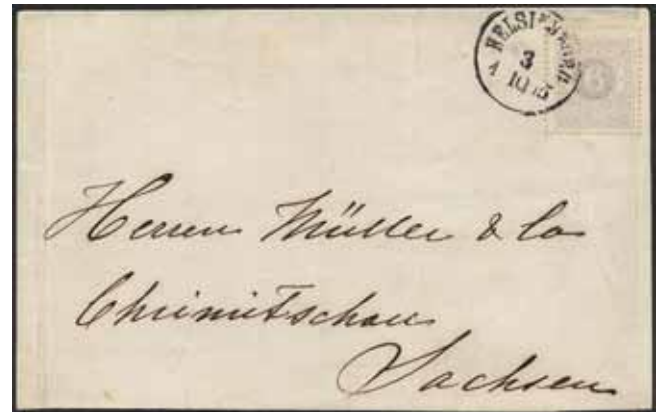 HELSINGBORG
3
10
6
Herren Müller & Co
Chrimitschau
Sachsen